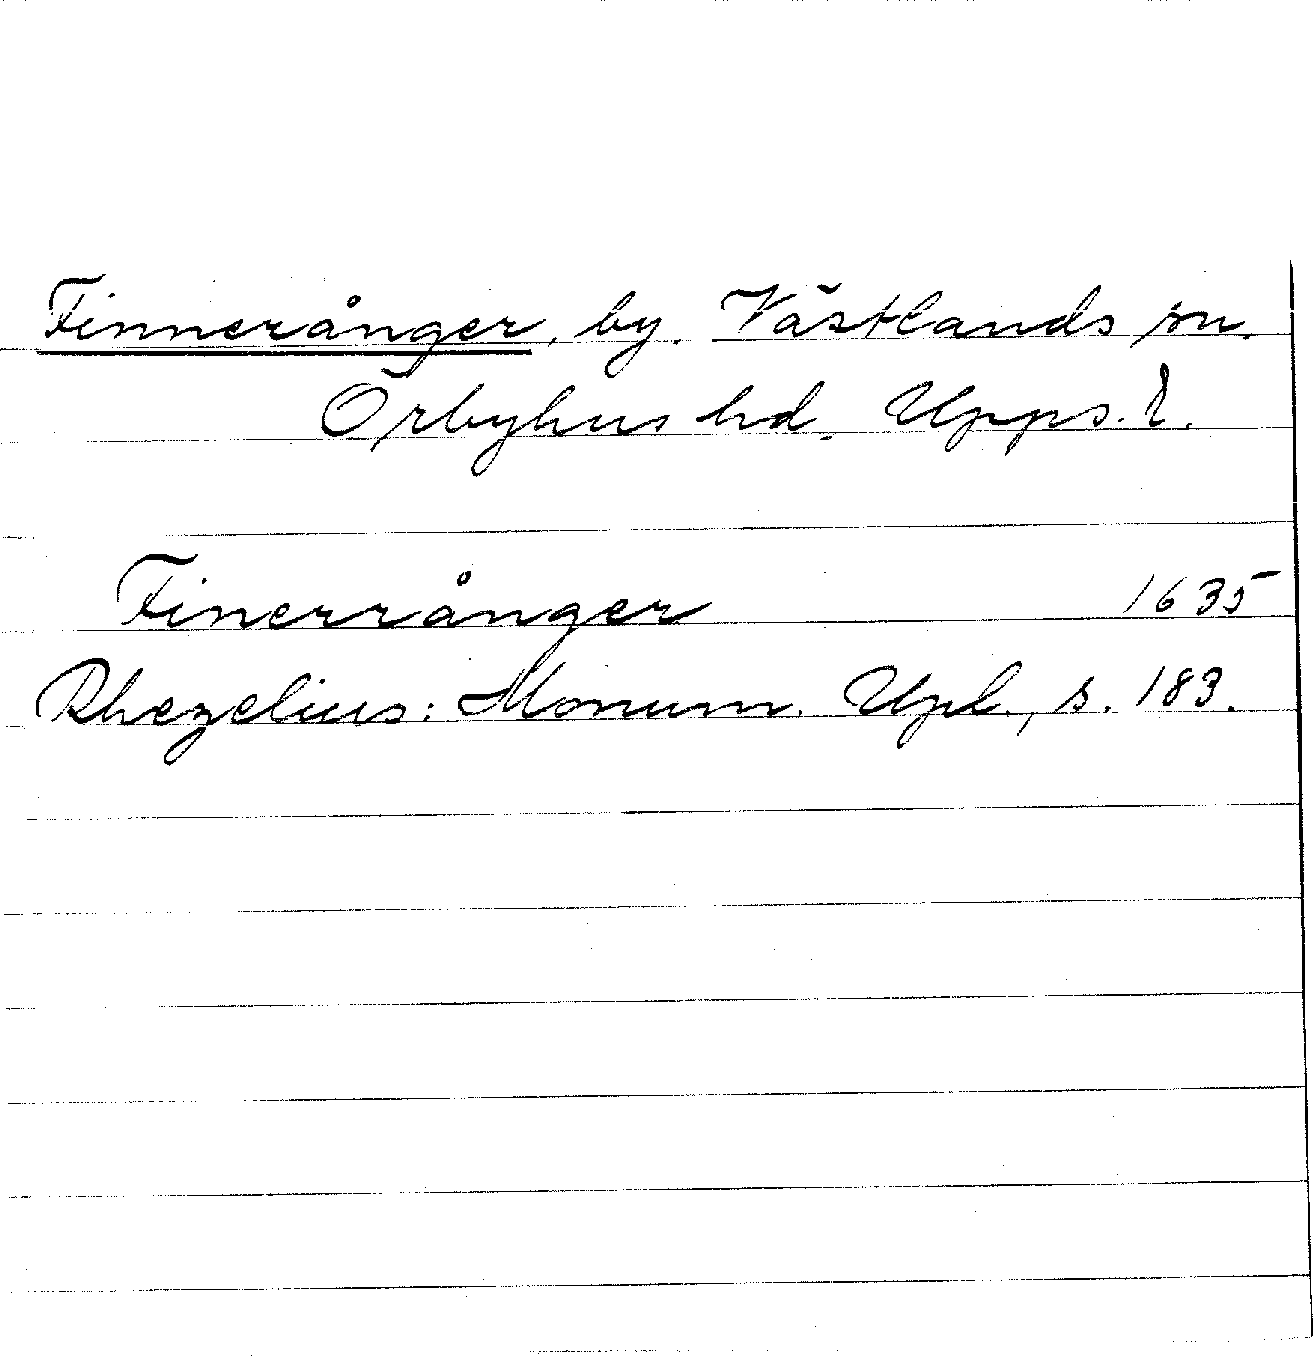 Finneränger, by. Västlands sn.
Örbyhus hd. Upps. l.
Finerrånger 1635
Rhezelius: Monum. Upl., s. 183.